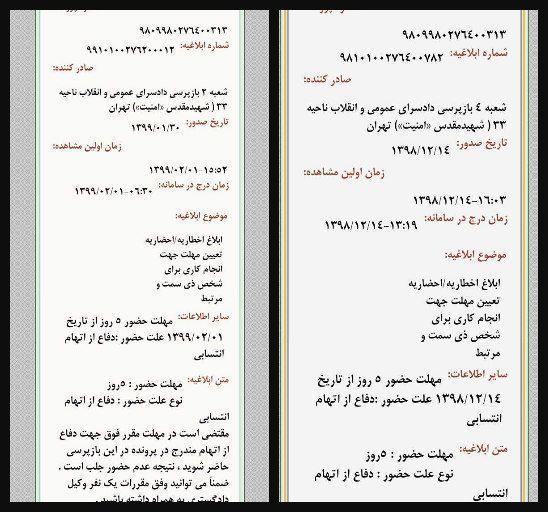 ۹۸۰۹۹۸۰۲۷۶۴۰۰۳۱۳
شماره ابلاغیه: ۹۸۱۰۱۰۰۲۷۶۴۰۰۷۸۲
صادر کننده:
شعبه ۴ بازپرسی دادسرای عمومی و انقلاب ناحیه
۳۳ ( شهیدمقدس «امنیت») تهران
تاریخ صدور: ۱۳۹۸/۱۲/۱۴
زمان اولین مشاهده:
۱۳۹۸/۱۲/۱۴-۱۶:۰۳
زمان درج در سامانه: ۱۳۹۸/۱۲/۱۴-۱۳:۱۹
موضوع ابلاغیه:
ابلاغ اخطاریه/احضاریه
تعیین مهلت جهت
انجام کاری برای
شخص ذی سمت و
مرتبط
سایر اطلاعات: مهلت حضور ۵ روز از تاریخ
۱۳۹۸/۱۲/۱۴ علت حضور :دفاع از اتهام
انتسابی
متن ابلاغیه: مهلت حضور : ۵روز
نوع علت حضور : دفاع از اتهام
انتسابی
۹۸۰۹۹۸۰۲۷۶۴۰۰۳۱۳
شماره ابلاغیه: ۹۹۱۰۱۰۰۲۷۶۲۰۰۰۱۲
صادر کننده:
شعبه ۲ بازپرسی دادسرای عمومی و انقلاب ناحیه
۳۳ ( شهیدمقدس «امنیت») تهران
تاریخ صدور: ۱۳۹۹/۰۱/۳۰
زمان اولین مشاهده:
۱۳۹۹/۰۲/۰۱-۱۵:۵۲
زمان درج در سامانه: ۱۳۹۹/۰۲/۰۱-۰۶:۳۰
موضوع ابلاغیه:
ابلاغ اخطاریه/احضاریه
تعیین مهلت جهت
انجام کاری برای
شخص ذی سمت و
مرتبط
سایر اطلاعات: مهلت حضور ۵ روز از تاریخ
۱۳۹۹/۰۲/۰۱ علت حضور :دفاع از اتهام
انتسابی
متن ابلاغیه: مهلت حضور : ۵روز
نوع علت حضور : دفاع از اتهام
انتسابی
مقتضی است در مهلت مقرر فوق جهت دفاع
از اتهام مندرج در پرونده در این بازپرسی
حاضر شوید ، نتیجه عدم حضور جلب است .
ضمناً می توانید وفق مقررات یک نفر وکیل
دادگستری به همراه داشته باشید .